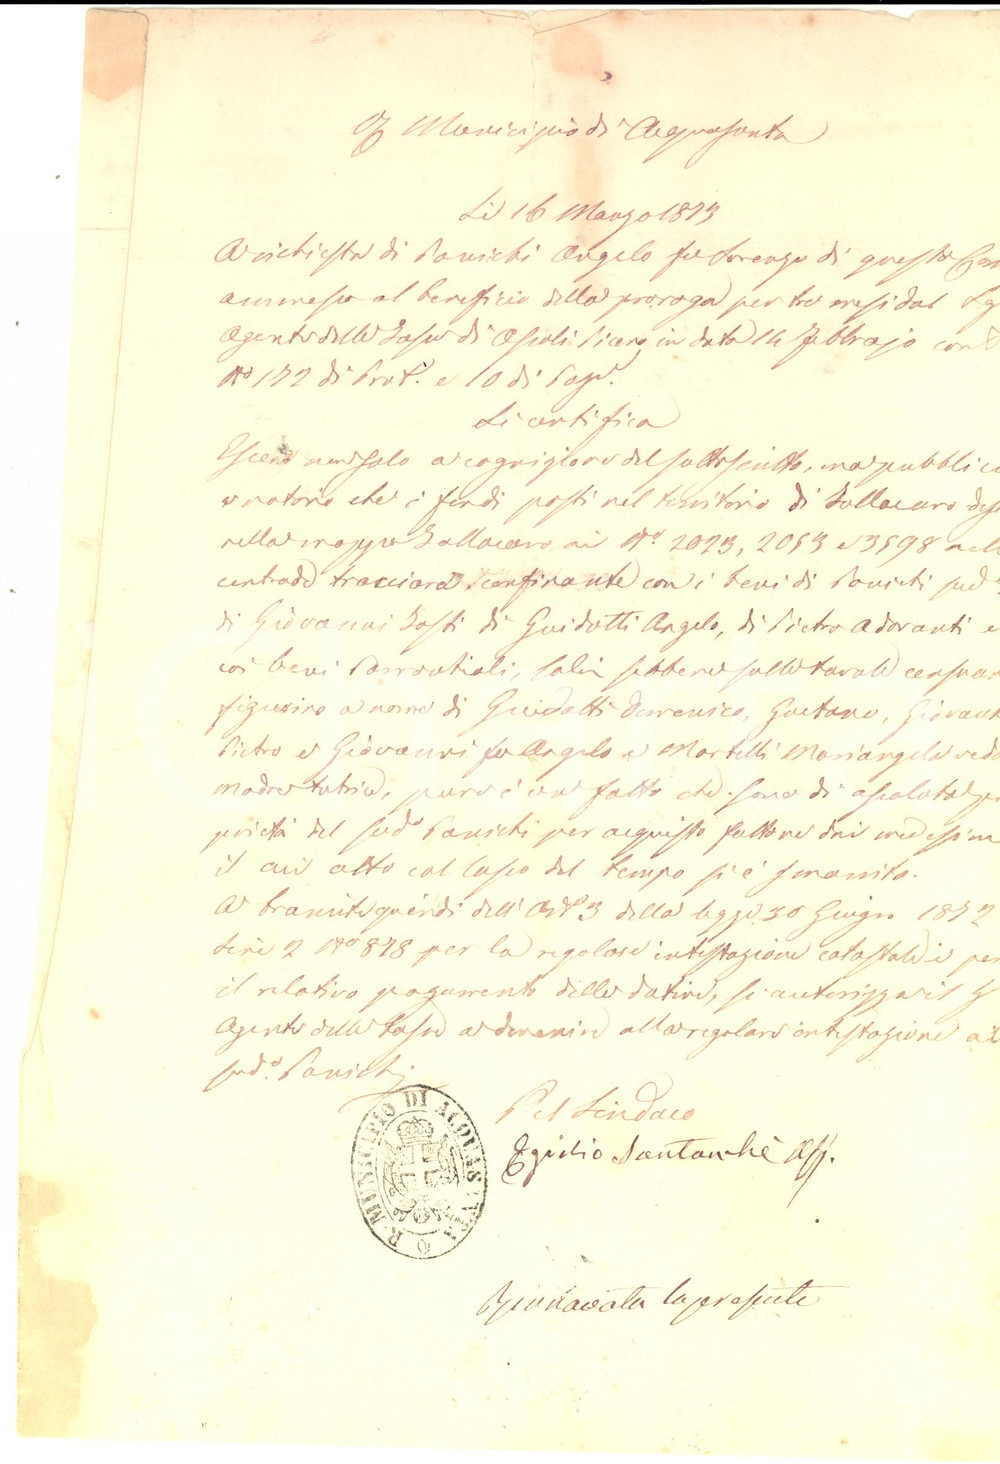 Municipio di Acquasanta
Li 16 Marzo 1873
A richiesta di Panichi Angelo fu Lorenzo di questo Com
ammesso al beneficio della proroga per tre mesi dal Sg
Agente delle Tasse di Ascoli Piceno in data 14 Febbrajo con
No 172 di Prot. e 10 di Pag.
Si certifica
Essere non solo a cognizione del sottoscritto, ma pubblico
e notorio che i fondi posti nel territorio di Tallacano
nella mappa Tallacano ai No. 2023, 2053 e 3598 nella
contrada confinante con i beni di Panichi sud
di Giovanni Tosti di Guidotti Angelo, di Pietro Adoranti e
coi beni Parrochiali, sebbene sulle tavole censuar
figurino a nome di Guidotti Domenico, Gaetano, Giovann
Pietro e Giovanni fu Angelo e Martelli Mariangela ved
madre tutrice, pure è un fatto che sono di assoluta pro
prietà del sudo Panichi per acquisto fattone dai medesim
il cui atto col lasso del tempo si è smarrito.
A tramite quindi dell' Arto 3 della legge 30 Giugno 1872
Serie 2 No 878 per la regolare intestazione catastale e per
il relativo pagamento delle dative, si autorizza il
Agente delle Tasse a devenire alla regolare intestazione al
sudo. Panichi
Pel Sindaco
Egidio Santanchè Ass.
R. MUNICIPIO DI ACQUASANTA
Rinnovata la presente